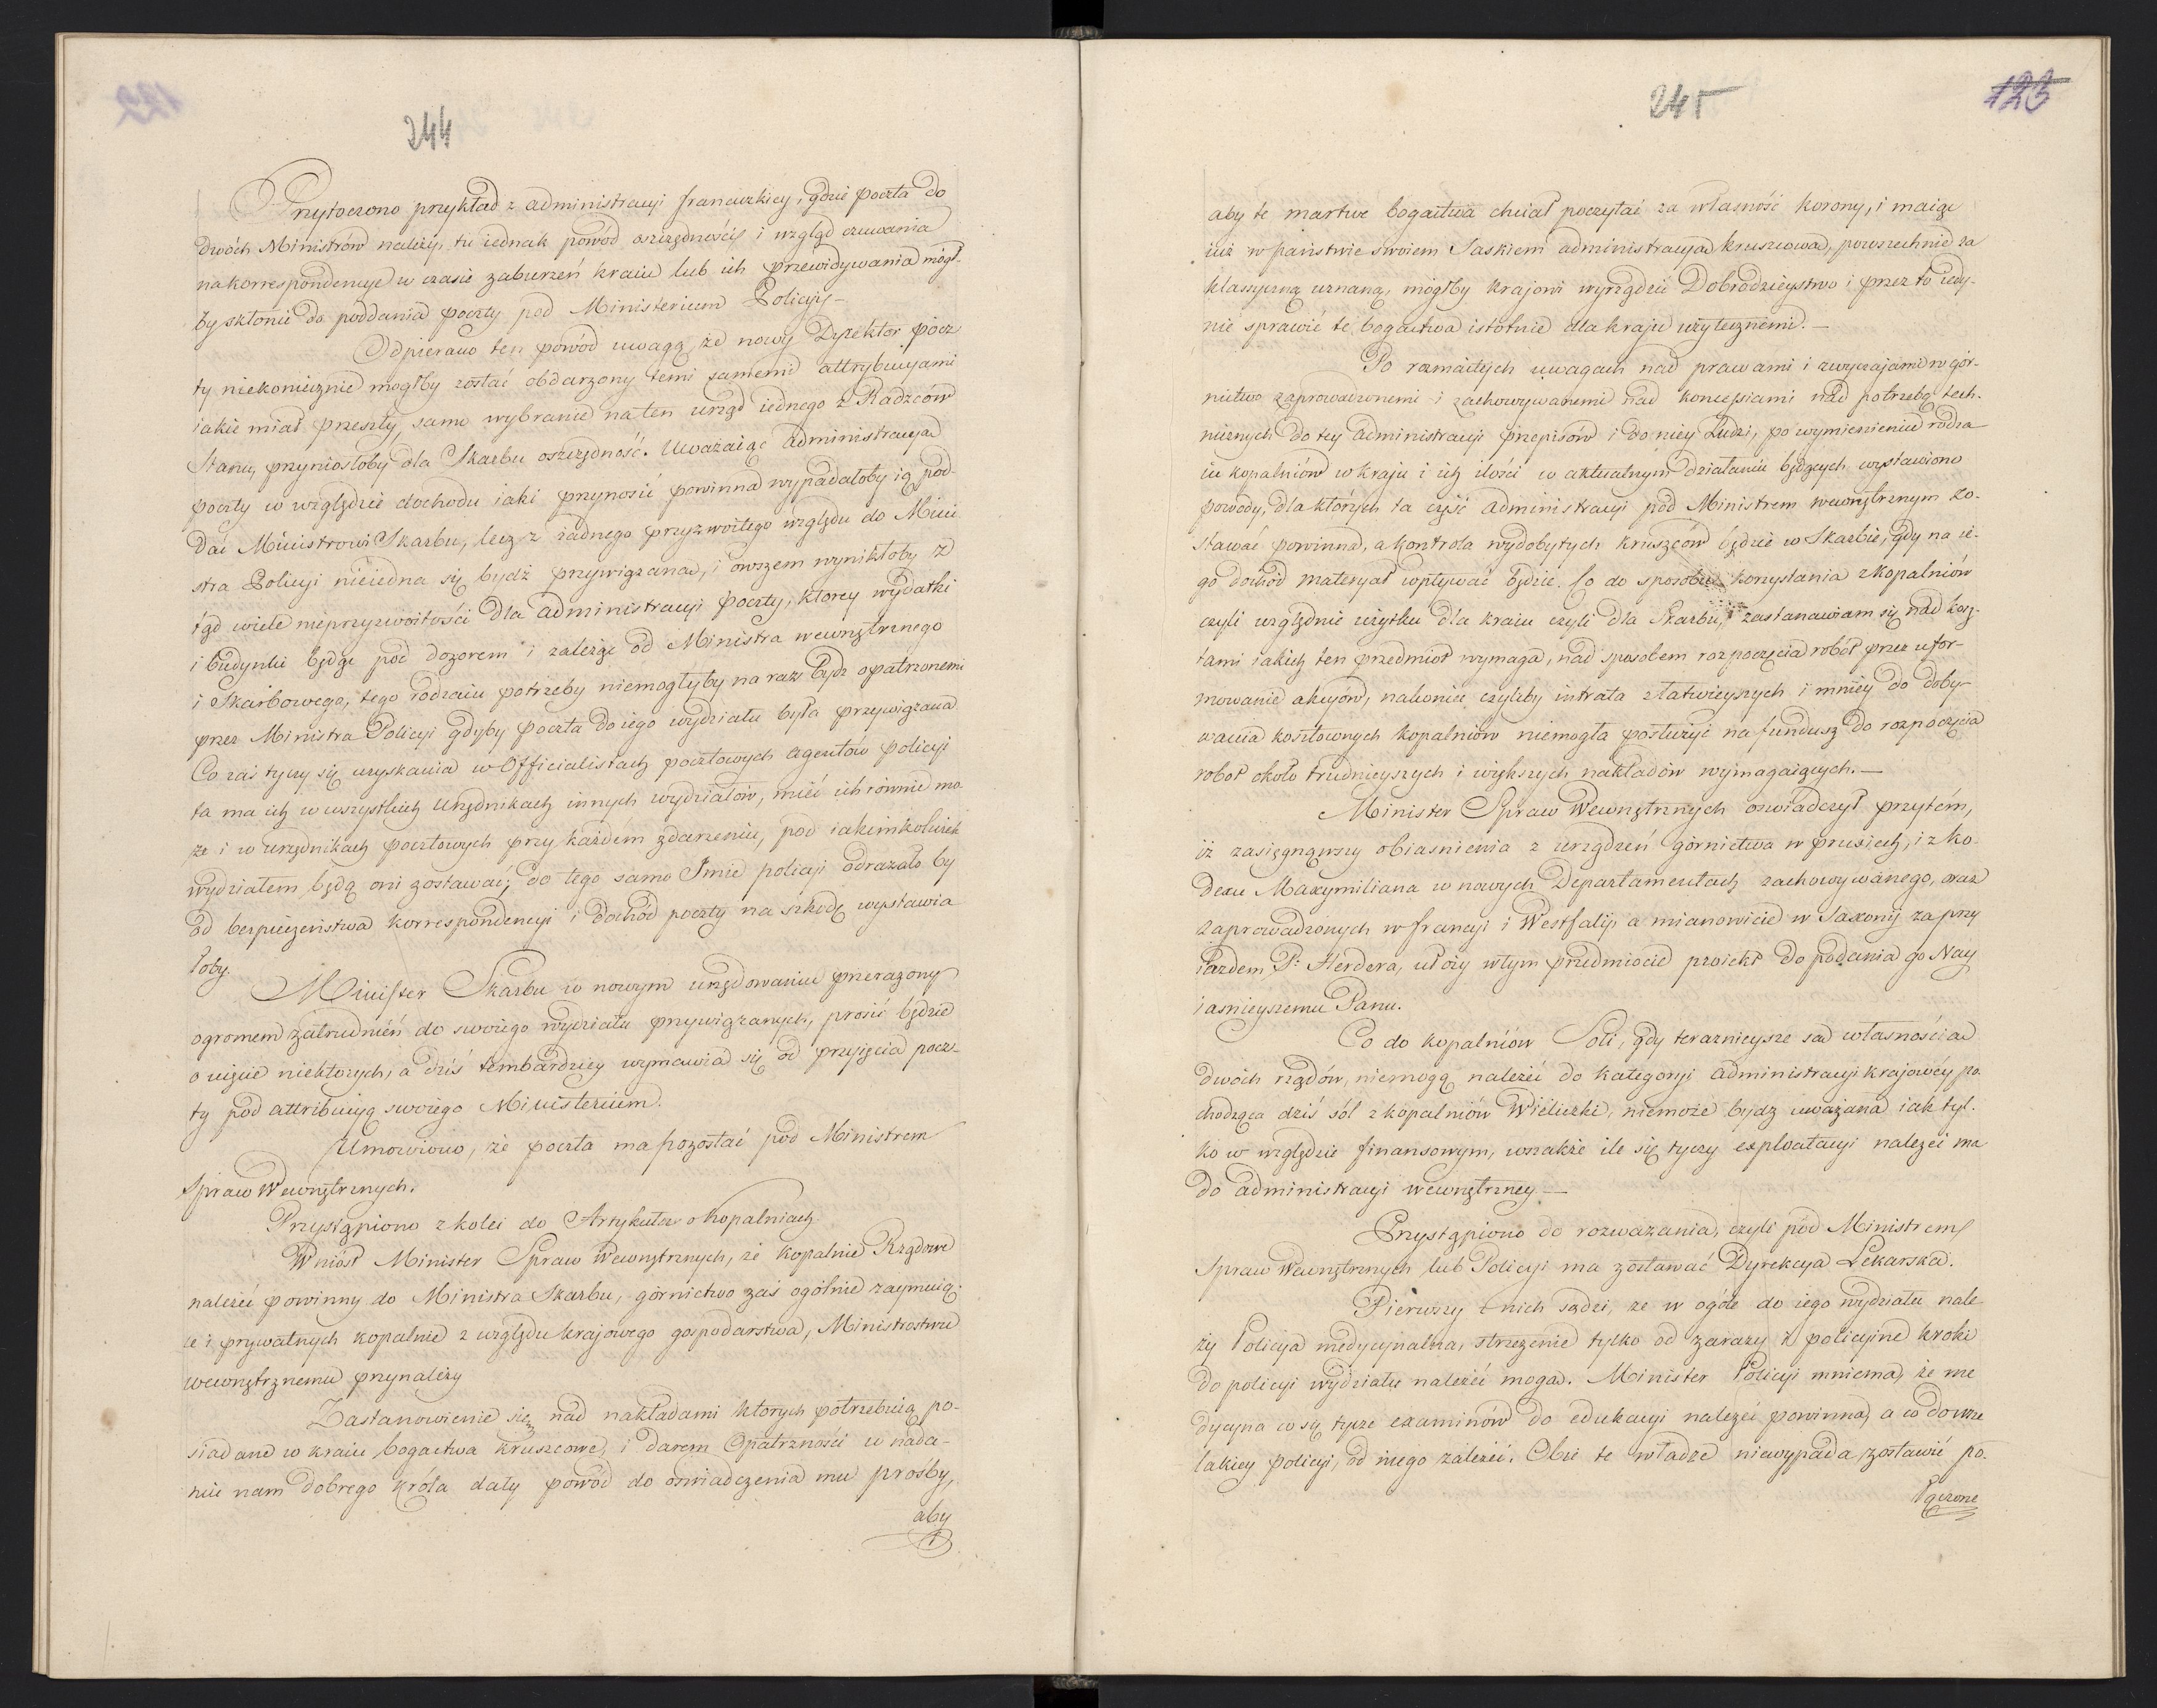 244
Przytoczono przykład z administracyi francuzkiey, gdzie poczta do
dwóch Ministrów należy, tu iednak powód oszczędności i wzgląd czuwania
na korrespondencye w czasie zaburzeń kraiu lub ich przewidywania mógł-
by skłonić do poddania poczty pod Ministerium Policyi –
Odpierano ten powód uwagą, że nowy Dyrektor pocz
ty niekoniecznie mogłby zostać obdarzony temi samemi attrybucyami
iakie miał przeszły, samo wybranie na ten urząd iednego z Radzców
Stanu, przyniosłoby dla Skarbu oszczędność. Uważaiąc administracyą
poczty w względzie dochodu iaki przynosić powinna wypadałoby ią pod-
dać Ministrowi Skarbu, lecz z żadnego przyzwoitego względu do Mini
stra Policyi nieiedna się bydź przywiązana, i owszem wynikłoby z
tąd wiele nieprzyzwoitości dla administracyi poczty, ktorey wydatki
i budynki będąc pod dozorem i zależąc od Ministra wewnętrznego
i Skarbowego, tego rodzaiu potrzeby niemogłyby na raz bydź opatrzonemi
przez Ministra Policyi gdyby poczta do iego wydziału była przywiązana
Co zaś tyczy się uzyskania w Officialistach pocztowych agentów policyi
ta ma ich w wszystkich urzędnikach innych wydziałów, mieć ich równie mo
że i w urzędnikach pocztowych przy każdém zdarzeniu, pod iakimkolwiek
wydziałem będą oni zostawać; do tego samo Imie policyi odrażało by
od bezpieczeństwa korrespondencyi i dochód poczty na szkodę wystawia
łoby.
Minister Skarbu w nowym urzędowaniu przerażony
ogromem zatrudnień do swoiego wydziału przywiązanych, prosić będzie
o uięcie niektorych, a dziś tembardziey wymawia się od przyięcia pocz-
ty pod attribucyą swoiego Ministerium.
Umowiono, że poczta ma pozostać pod Ministrem
Spraw Wewnętrznych.
Przystąpiono z kolei do Artykułu o Kopalniach
Wniósł Minister Spraw Wewnętrznych, że kopalnie Rządowe
należeć powinny do Ministra Skarbu, górnictwo zaś ogólnie zaymuią-
ce i prywatnych kopalnie z względu krajowego gospodarstwa, Ministrostwu
wewnętrznemu przynależy
Zastanowienie się nad nakładami ktorych potrzebuią po-
siadane w kraiu bogactwa kruszcowe, i darem Opatrzności w nada-
niu nam dobrego króla dały powód do oświadczenia mu prośby,
aby
245
123
aby te martwe bogactwa chciał poczytać za własność korony, i maiąc
iuż w państwie swoiem Saskiem administracyą kruszcową, powszechnie za
klassyczną uznaną, mógłby krajowi wyrządzić Dobrodzieystwo i przez to iedy-
nie sprawić te bogactwa istotnie dla kraju użytecznemi. —
Po rozmaitych uwagach nad prawami i zwyczajami w gór-
nictwo zaprowadzonemi i zachowywanemi nad koncessiami nad potrzebą tech-
nicznych do tey administracyi przepisów i do niey Ludzi, po wymienieniu rodza
iu kopalniów w kraju i ich ilości w aktualnym działaniu będących wystawiono
powody, dla których ta część administracyi pod Ministrem wewnętrznym zo-
stawać powinna, a kontrola wydobytych kruszców będzie w Skarbie, gdy na ie-
go dochód materyał wpływać będzie. Co do sposobu korzystania z kopalniów
czyli względnie użytku dla kraiu czyli dla Skarbu, zastanawiam się nad kosz-
tami iakich ten przedmiot wymaga, nad sposobem rozpoczęcia robót przez ufor-
mowanie akcyów, nakoniec czyliby intrata z łatwieyszych i mniey do doby-
wania kosztownych kopalniów niemogła posłużyć na fundusz do rozpoczęcia
robot około trudnieyszych i większych nakładów wymagaiących. —
Minister Spraw Wewnętrznych oswiadczył przytém,
iż zasięgnąwszy obiasnienia z urządzeń górnictwa w prusiech, i z ko-
dexu Maxymiliana w nowych Departamentach zachowywanego, oraz
zaprowadzonych w francyi i Westfalii, a mianowicie w Saxonij za przy
iazdem P: Herdera, ułoży w tym przedmiocie proiekt do podania go Nay
iasnieyszemu Panu.
Co do kopalniów Soli, gdy teraznieysze są własnością
dwóch rządów, niemogą należeć do kategoryi administracyi krajowéy po-
chodząca dziś sól z kopalniów Wieliczki, niemoże bydz uważana iak tyl-
ko w względzie finansowym, wszakże ile się tyczy exploatacyi należeć ma
do administracyi wewnętrzney —
Przystąpiono do rozważania, czyli pod Ministrem
Spraw Wewnętrznych lub Policyi ma zostawać Dyrekcya Lekarska.
Pierwszy z nich sądzi, że w ogóle do iego wydziału nale
ży Policya medycynalna, strzeżenie tylko od zarazy i policyine kroki
do policyi wydziału należeć mogą. Minister Policyi mniema, że me
dycyna co się tycze examinów do edukacyi należeć powinna, a co do wsze
lakiey policyi, od niego zależeć. Obie te władze niewypada zostawić po-
łączone